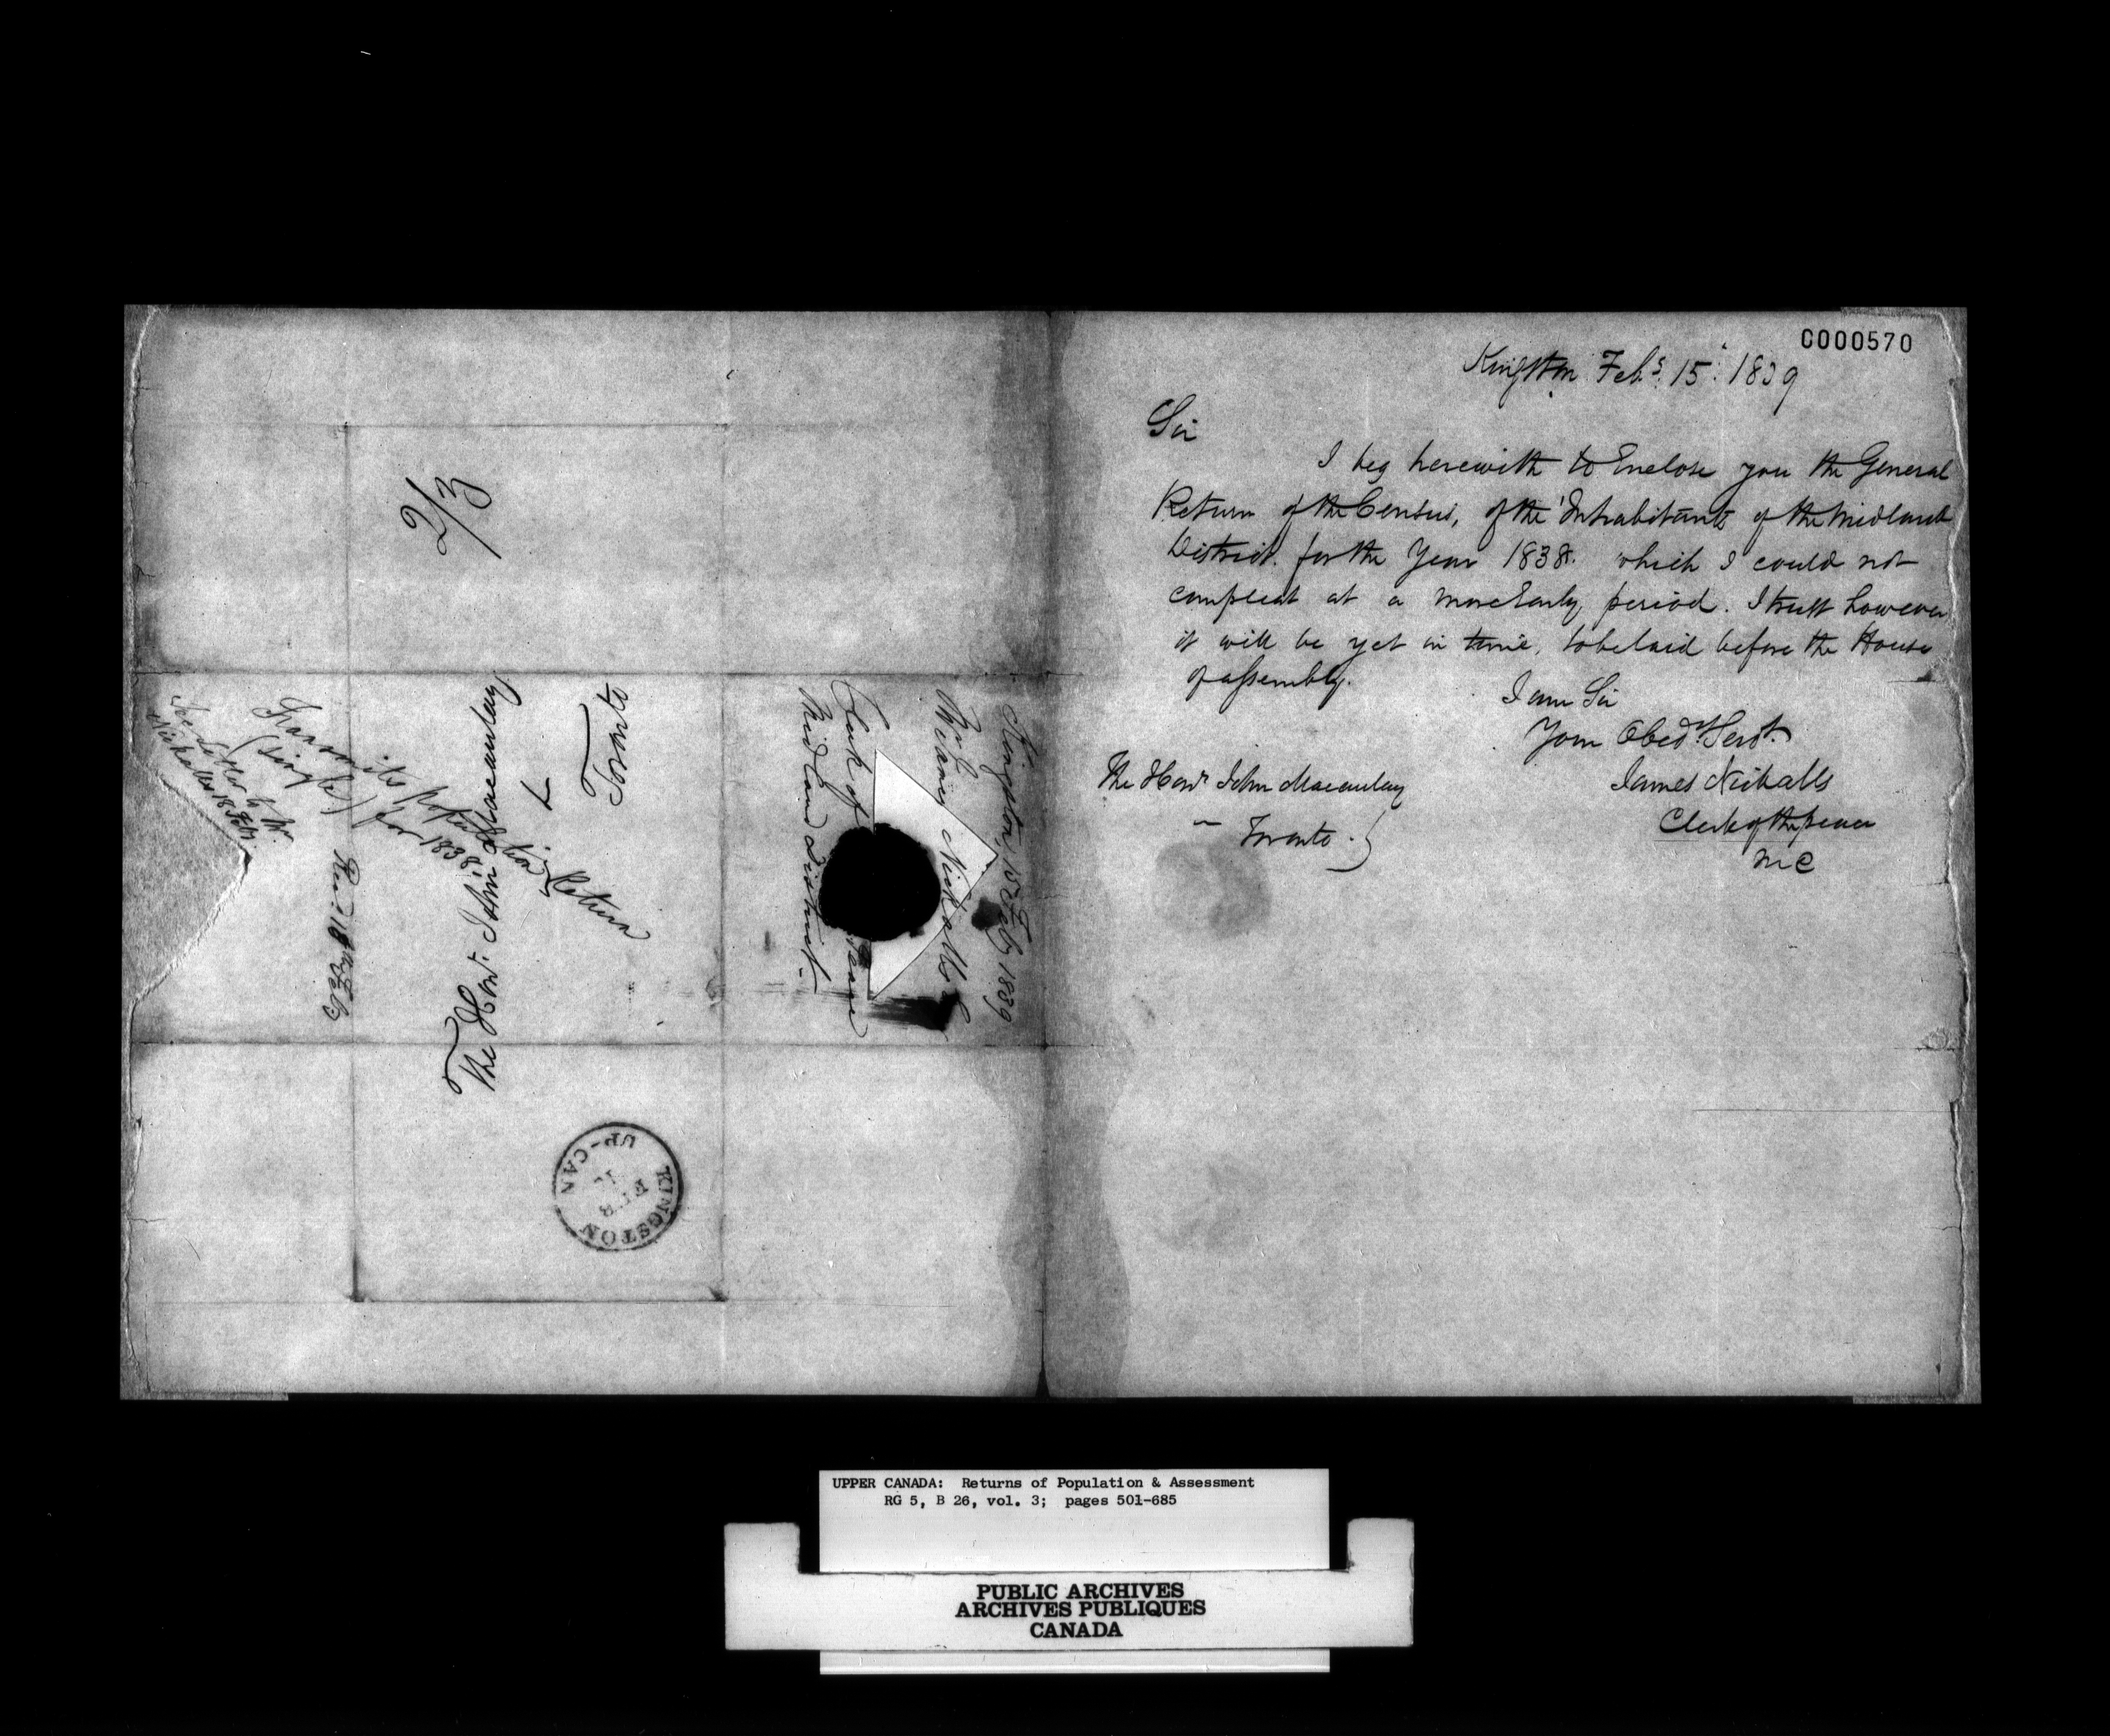 C000570
Kingston Feby. 15. 1839
Sir
I beg herewith to Enclose you the General
Return of the Census, of the Inhabitants of the Midland
District. for the Year 1838. which I could not
compleat at a more Early period. I trust however
it will be yet in time, to be laid before the House
of assembly.
I am Sir
Your Obedt. Servt.
James Nickalls
Clerk of the peace
M D
The Honl. John Macaulay
Toronto
2/3
The Honl. John Macaulay
Toronto
KINGSTON
UP-CAN
FEB
Kingston, 15 Feby 1839
James Nickalls
Clerk of
Midland District
Transmits population Return
(single) for 1838.
See Letter to Mr.
Nickalls 18 Feb.
Recd 18th Feby
UPPER CANADA: Returns of Population & Assessment
RG 5, B 26, vol. 3; pages 501-685
PUBLIC ARCHIVES
ARCHIVES PUBLIQUES
CANADA